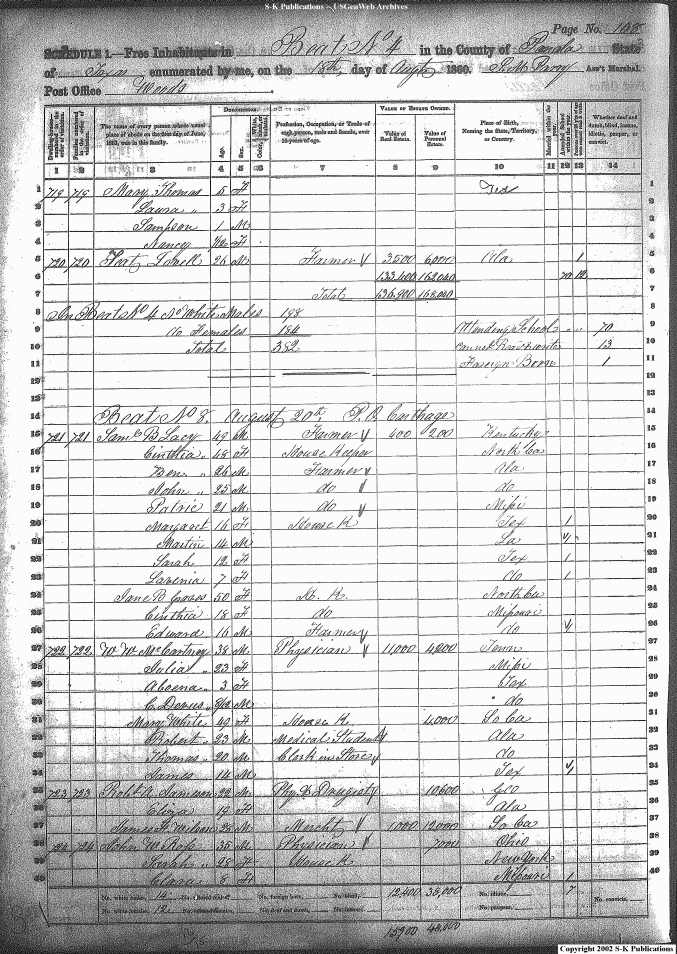 S-K Publications - USGenWeb Archives
Page No. 108
SCHEDULE 1.—Free Inhabitants in Beat No 4 in the County of Panola State
of Texas enumerated by me, on the 18th, day of Augt 1860. Ass't Marshal.
Post Office Woods
DESCRIPTION. VALUE OF ESTATE OWNED.
Dwelling-houses—numbered in the order of visitation.
Families numbered in the order of visitation.
The name of every person whose usual place of abode on the first day of June, 1860, was in this family.
Age. Sex.
Profession, Occupation, or Trade of each person, male and female, over 15 years of age.
Value of Real Estate. Value of Personal Estate.
Place of Birth, Naming the State, Territory, or Country.
Married within the year.
Attended School within the year.
Whether deaf and dumb, blind, insane, idiotic, pauper, or convict.
1 2 3 4 5 6 7 8 9 10 11 12 13 14
1 719 719 Mary Thomas 5 F Tex 1
2 Laura " 3 F 2
3 Sampson 1 M 3
4 Nancy F 4
5 720 720 26 M Farmer 3,500 6,000 Ala 1 5
6 133,400 162,040 70 12 6
7 Total 136,900 168,040 7
8 In Beat No 4 No White Males 198 8
9 do Females 184 Attending School " " 70 9
10 Total 382 13 10
11 Foreign Born 1 11
12 12
13 13
14 Beat No 8. August 20th P.O. Carthage 14
15 721 721 Saml B Lacy 49 M Farmer 400 200 Kentucky 15
16 Cinthia " 48 F House Keeper North Ca 16
17 26 M Farmer Va 17
18 John " 25 M do do 18
19 Patric 21 M do Missi 19
20 Margaret 16 F House K Tex 1 20
21 Martin 14 M La 1 21
22 Sarah 12 F Tex 1 22
23 Lavenia 7 F do 1 23
24 Jane B Graves 50 F H. K. North Ca 24
25 Cinthia 18 F do Missouri 25
26 Edward 16 M Farmer do 1 26
27 722 722 W W McCartney 38 M Physician 11,000 4,200 Tenn 27
28 Julia " 23 F Missi 28
29 3 F Tex 29
30 M do 30
31 Mary White 40 F House K. 4000 So Ca 31
32 Robert " 23 M Medical Student Ala 32
33 Thomas " 20 M Clerk in Store do 33
34 James 14 M Tex 1 34
35 723 723 Robt A 22 M Phy & Drugist 10600 Geo 35
36 Eliza 19 F Ala 36
37 James H Wilson 28 M Mercht 1,000 12000 So Ca 37
38 724 724 John W 35 M Physician 7000 Ohio 38
39 Sarah " 28 F House K New York 39
40 Clara 8 F Missouri 1 40
No. white males, 14 No. colored males, No. foreign born, No. blind, 12,400 35,000 No. idiotic, 7 No. convicts,
No. white females, 12 No. colored females, No. deaf and dumb, No. insane, No. paupers,
15900 41,000
Copyright 2002 S-K Publications